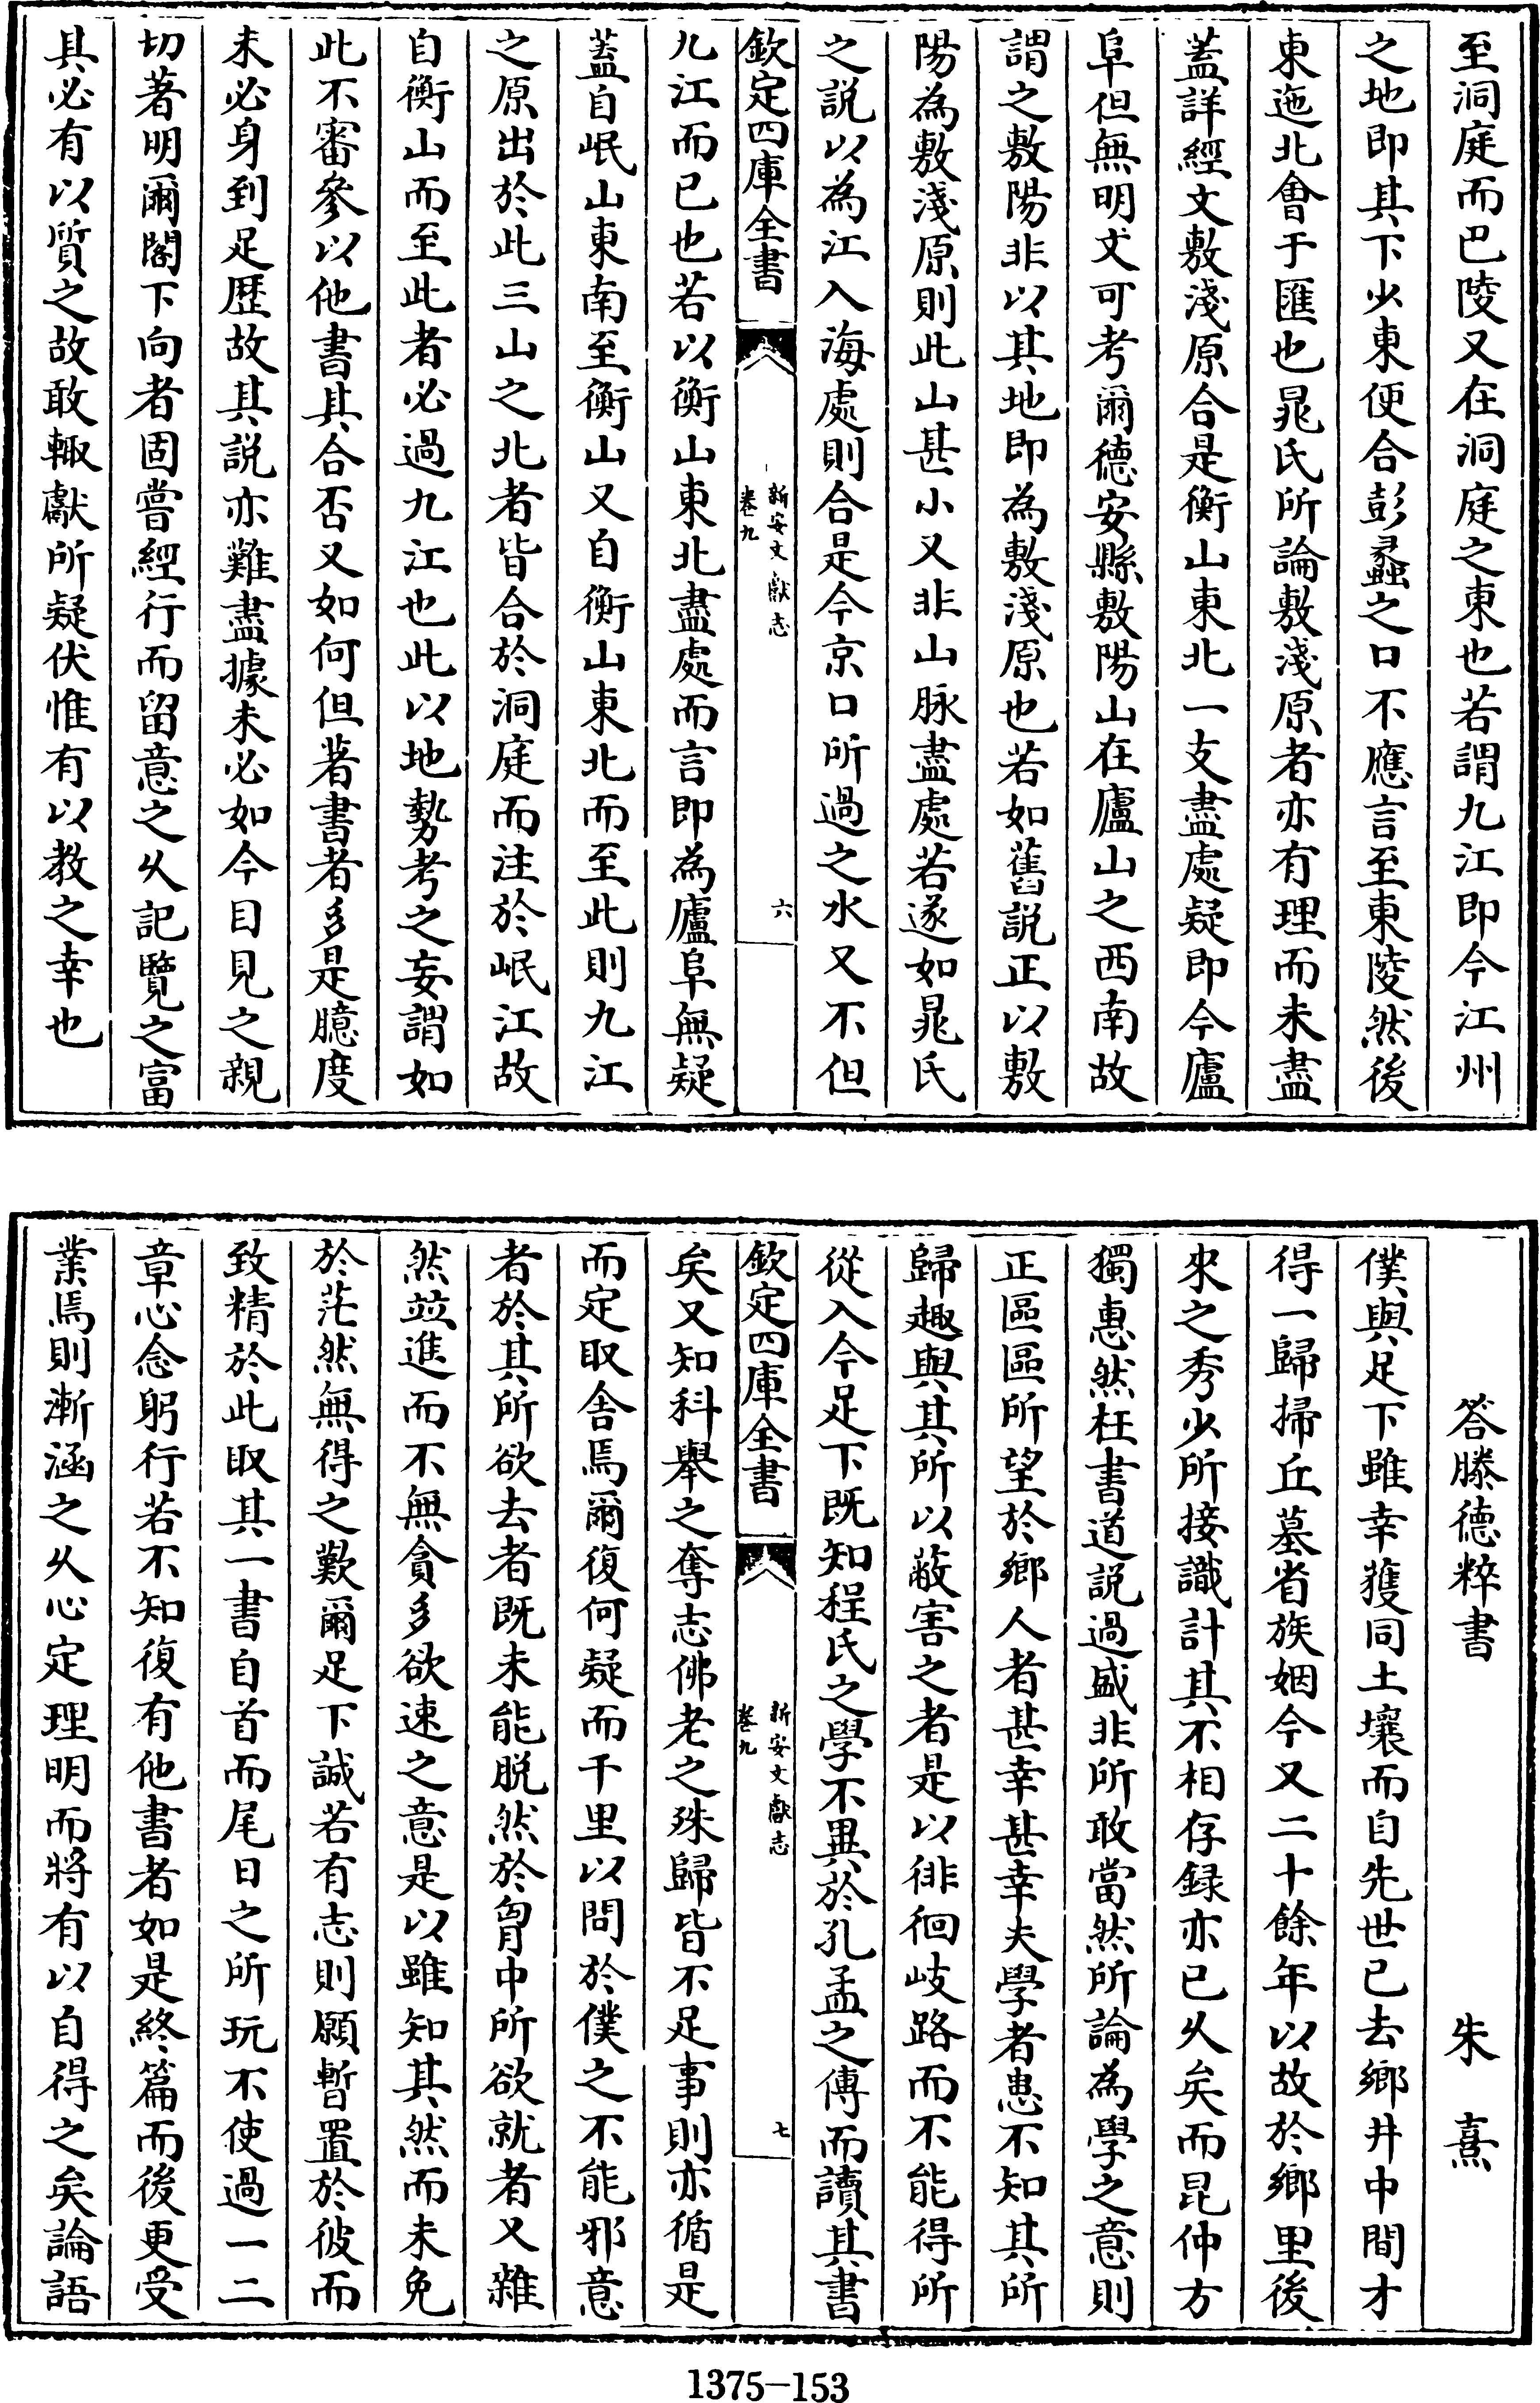 至洞庭而巴陵又在洞庭之東也若謂九江即今江州
之地即其下少東便合彭蠡之口不應言至東陵然後
東迤北會于匯也晁氏所論敷淺原者亦有理而未盡
蓋詳經文敷淺原合是衡山東北一支盡處疑即今廬
阜但無明文可考爾德安縣敷陽山在廬山之西南故
謂之敷陽非以其地即為敷淺原也若如舊説正以敷
陽為敷淺原則此山甚小又非山脉盡處若遂如晁氏
之説以為江入海處則合是今京口所過之水又不但
欽定四庫全書
新安文獻志
卷九
六
九江而已也若以衡山東北盡處而言即為廬阜無疑
蓋自岷山東南至衡山又自衡山東北而至此則九江
之原出於此三山之北者皆合於洞庭而注於岷江故
自衡山而至此者必過九江也此以地勢考之妄謂如
此不審參以他書其合否又如何但著書者多是臆度
未必身到足歷故其説亦難盡據未必如今目見之親
切著明爾閣下向者固嘗經行而留意之乆記覽之富
其必有以質之故敢輙獻所疑伏惟有以教之幸也
答滕德粹書 朱熹
僕與足下雖幸獲同土壤而自先世已去鄉井中間才
得一歸掃丘墓省族姻今又二十餘年以故於鄉里後
來之秀少所接識計其不相存録亦已乆矣而昆仲方
獨惠然枉書道説過盛非所敢當然所論為學之意則
正區區所望於鄉人者甚幸甚幸夫學者患不知其所
歸趣與其所以蔽害之者是以徘徊岐路而不能得所
從入今足下既知程氏之學不異於孔孟之傳而讀其書
欽定四庫全書
新安文獻志
卷九
七
矣又知科舉之奪志佛老之殊歸皆不足事則亦循是
而定取舍焉爾復何疑而千里以問於僕之不能邪意
者於其所欲去者既未能脱然於胷中所欲就者又雜
然竝進而不無貪多欲速之意是以雖知其然而未免
於茫然無得之歎爾足下誠若有志則願暫置於彼而
致精於此取其一書自首而尾日之所玩不使過一二
章心念躬行若不知復有他書者如是終篇而後更受
業焉則漸涵之乆心定理明而將有以自得之矣論語
1375-153